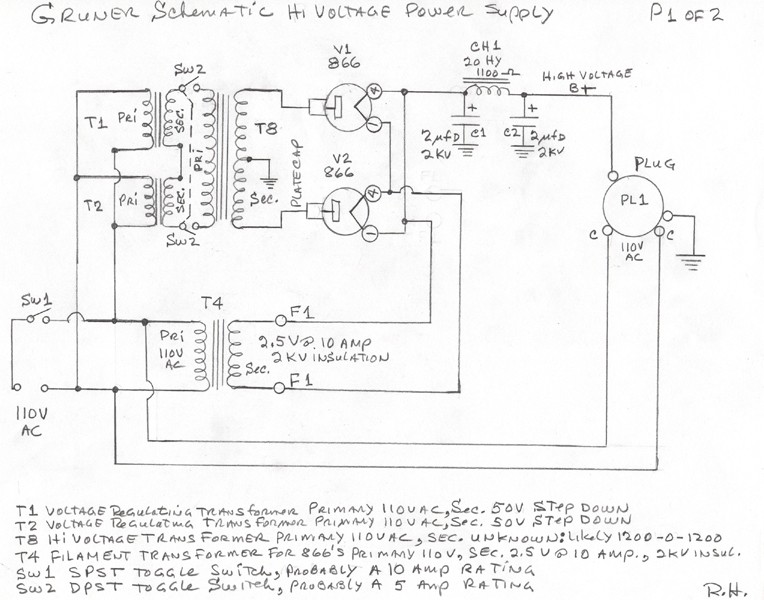 GRUNER SCHEMATIC HI VOLTAGE POWER SUPPLY P1 OF 2
V1
866
CH1
20 HY
1100 Ω
SW2
HIGH VOLTAGE
B+
T1 PRI SEC.
PRI
T8
PLATE CAP
4
1
+
2µfD C1
2KV
+
C2 2µfD
2KV
V2
866
4
1
T2 PRI SEC.
SEC.
SW2
PLUG
PL1
C 110V C
AC
SW1
T4
PRI
110V
AC
SEC.
F1
2.5V@ 10 AMP
2KV INSULATION
F1
110V
AC
T1 VOLTAGE REGULATING TRANSFORMER PRIMARY 110VAC, SEC. 50V STEP DOWN
T2 VOLTAGE REGULATING TRANSFORMER PRIMARY 110VAC, SEC. 50V STEP DOWN
T8 HI VOLTAGE TRANSFORMER PRIMARY 110VAC, SEC. UNKNOWN: LIKELY 1200-0-1200
T4 FILAMENT TRANSFORMER FOR 866'S PRIMARY 110V, SEC. 2.5V @ 10 AMP., 2KV INSUL.
SW1 SPST TOGGLE SWITCH, PROBABLY A 10 AMP RATING
SW2 DPST TOGGLE SWITCH, PROBABLY A 5 AMP RATING
R.H.